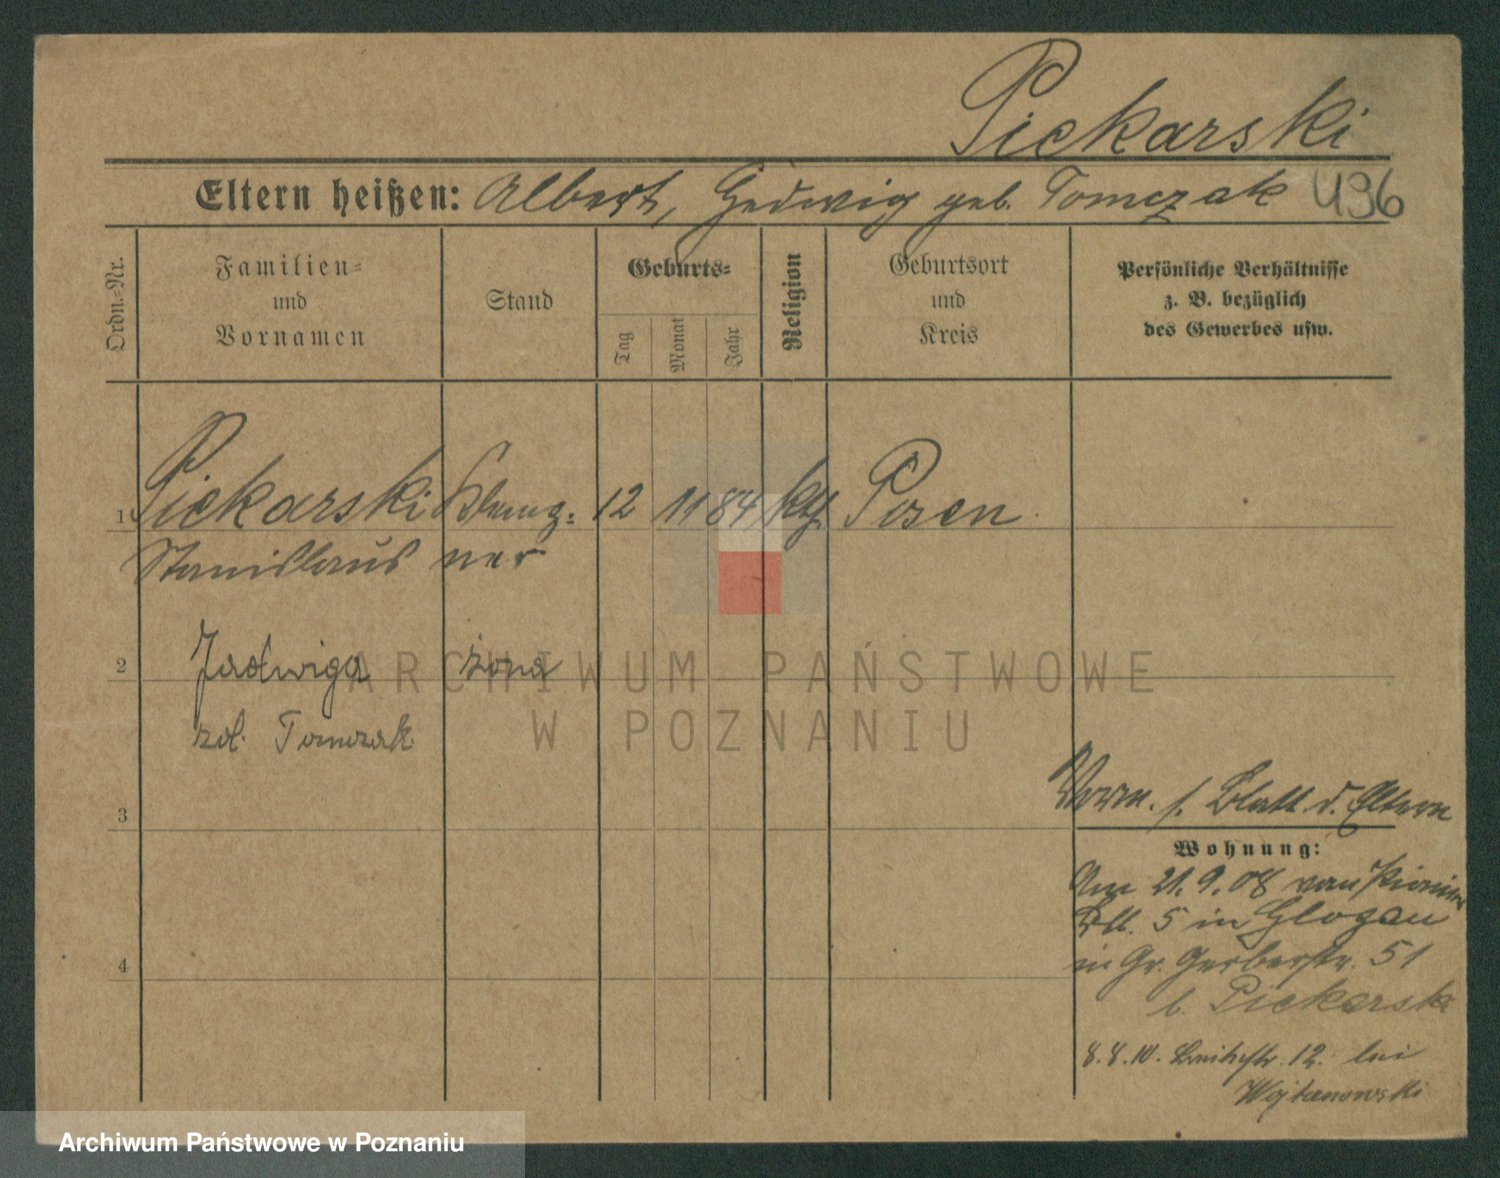 Piekarski
Eltern heißen: Albert, Hedwig geb. Tomczak 496
Ordn.-Nr.
Familien- und Vornamen
Stand
Geburts-
Tag
Monat
Jahr
Religion
Geburtsort und Kreis
Persönliche Verhältnisse
z. B. bezüglich
des Gewerbes usw.
1 Piekarski Klemp- 12 11 84 kth. Posen
Stanislaus ner
2 Jadwiga żona
Tomczak
3
4
Vorm. s. Blatt d. Eltern
Wohnung:
Am 21.9.08 vom Pionier
Btl. 5 in Glogau
in Gr. Gerberstr. 51
b. Piekarski
8.8.10. Breitestr. 12. bei
Wojtanowski
ARCHIWUM PAŃSTWOWE
W POZNANIU
Archiwum Państwowe w Poznaniu